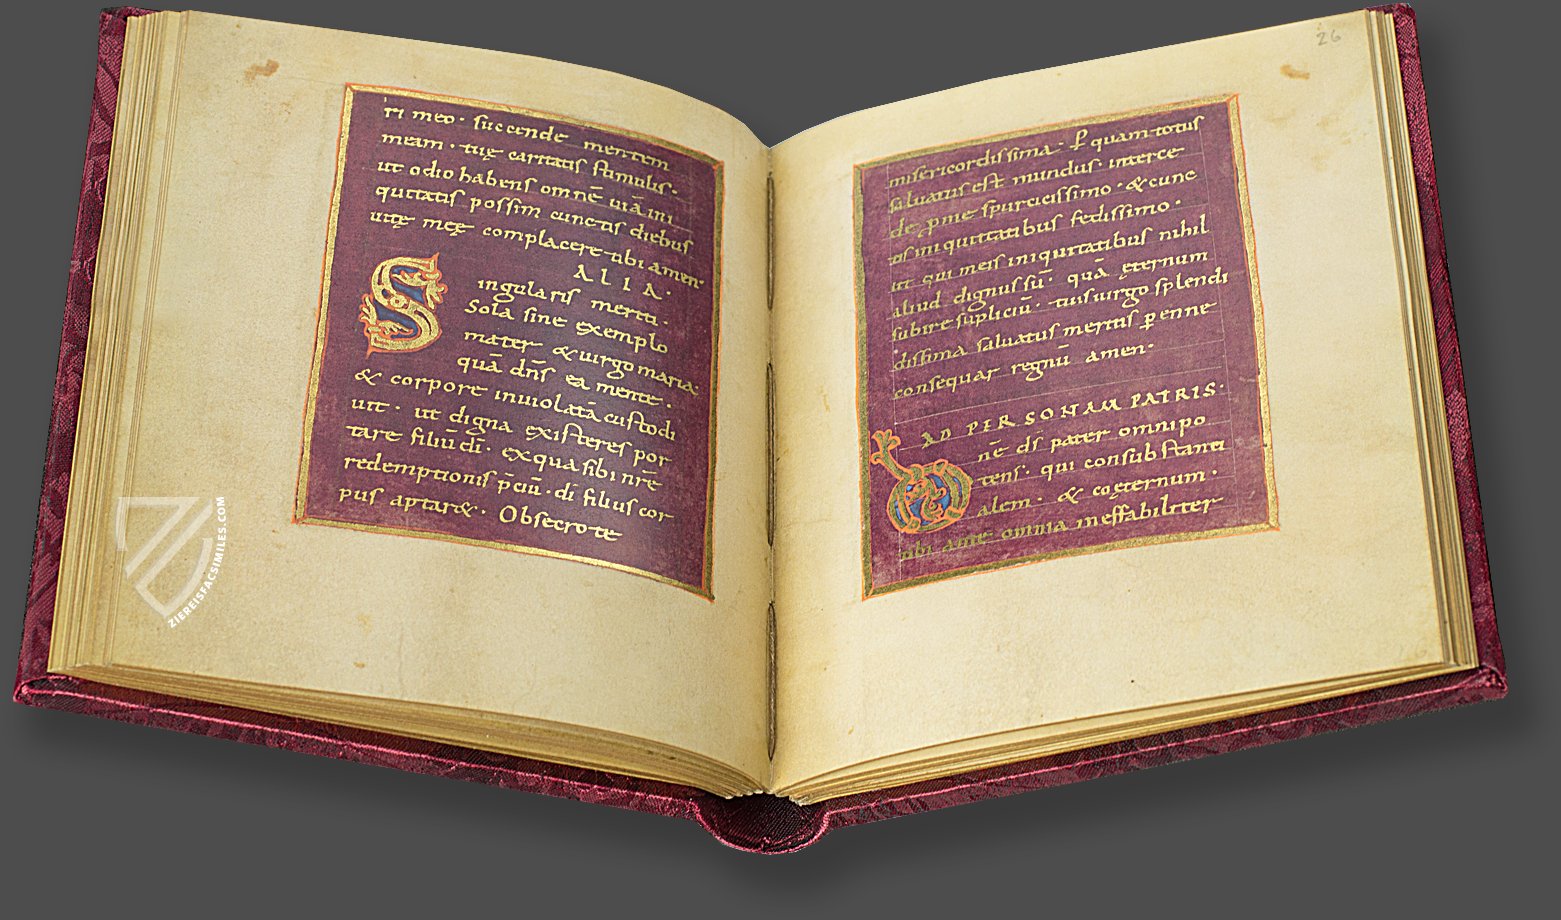 ri meo · succende mentem
meam · tuę caritatis stimulis ·
ut odio habens omnē uiā ini
quitatis possim cunctis diebus
uitę meę complacere tibi amen ·
ALIA ·
Singularis meriti ·
Sola sine exemplo
mater & uirgo maria ·
quā dn̄s ea mente ·
& corpore inuiolatā custodi
uit · ut digna existeres por
tare filiū dī · ex qua sibi nrē
redemptionis p̄ciū · dī filius cor
pus aptar& · Obsecro te
26
misericordissima · ꝑ quam totus
saluatus est mundus · interce
de ꝓ me spurcissimo · & cunc
tis iniquitatibus fedissimo ·
ut qui meis iniquitatibus nihil
aliud dignus sū · quā ęternum
subire supliciū · tuis uirgo splendi
dissima saluatus meritis ꝑenne
consequar regnū amen ·
AD PERSONAM PATRIS ·
Dn̄e dī pater omnipo
tens · qui consubstanti
alem · & coęternum ·
tibi ante omnia ineffabiliter
ZIEREISFACSIMILES.COM